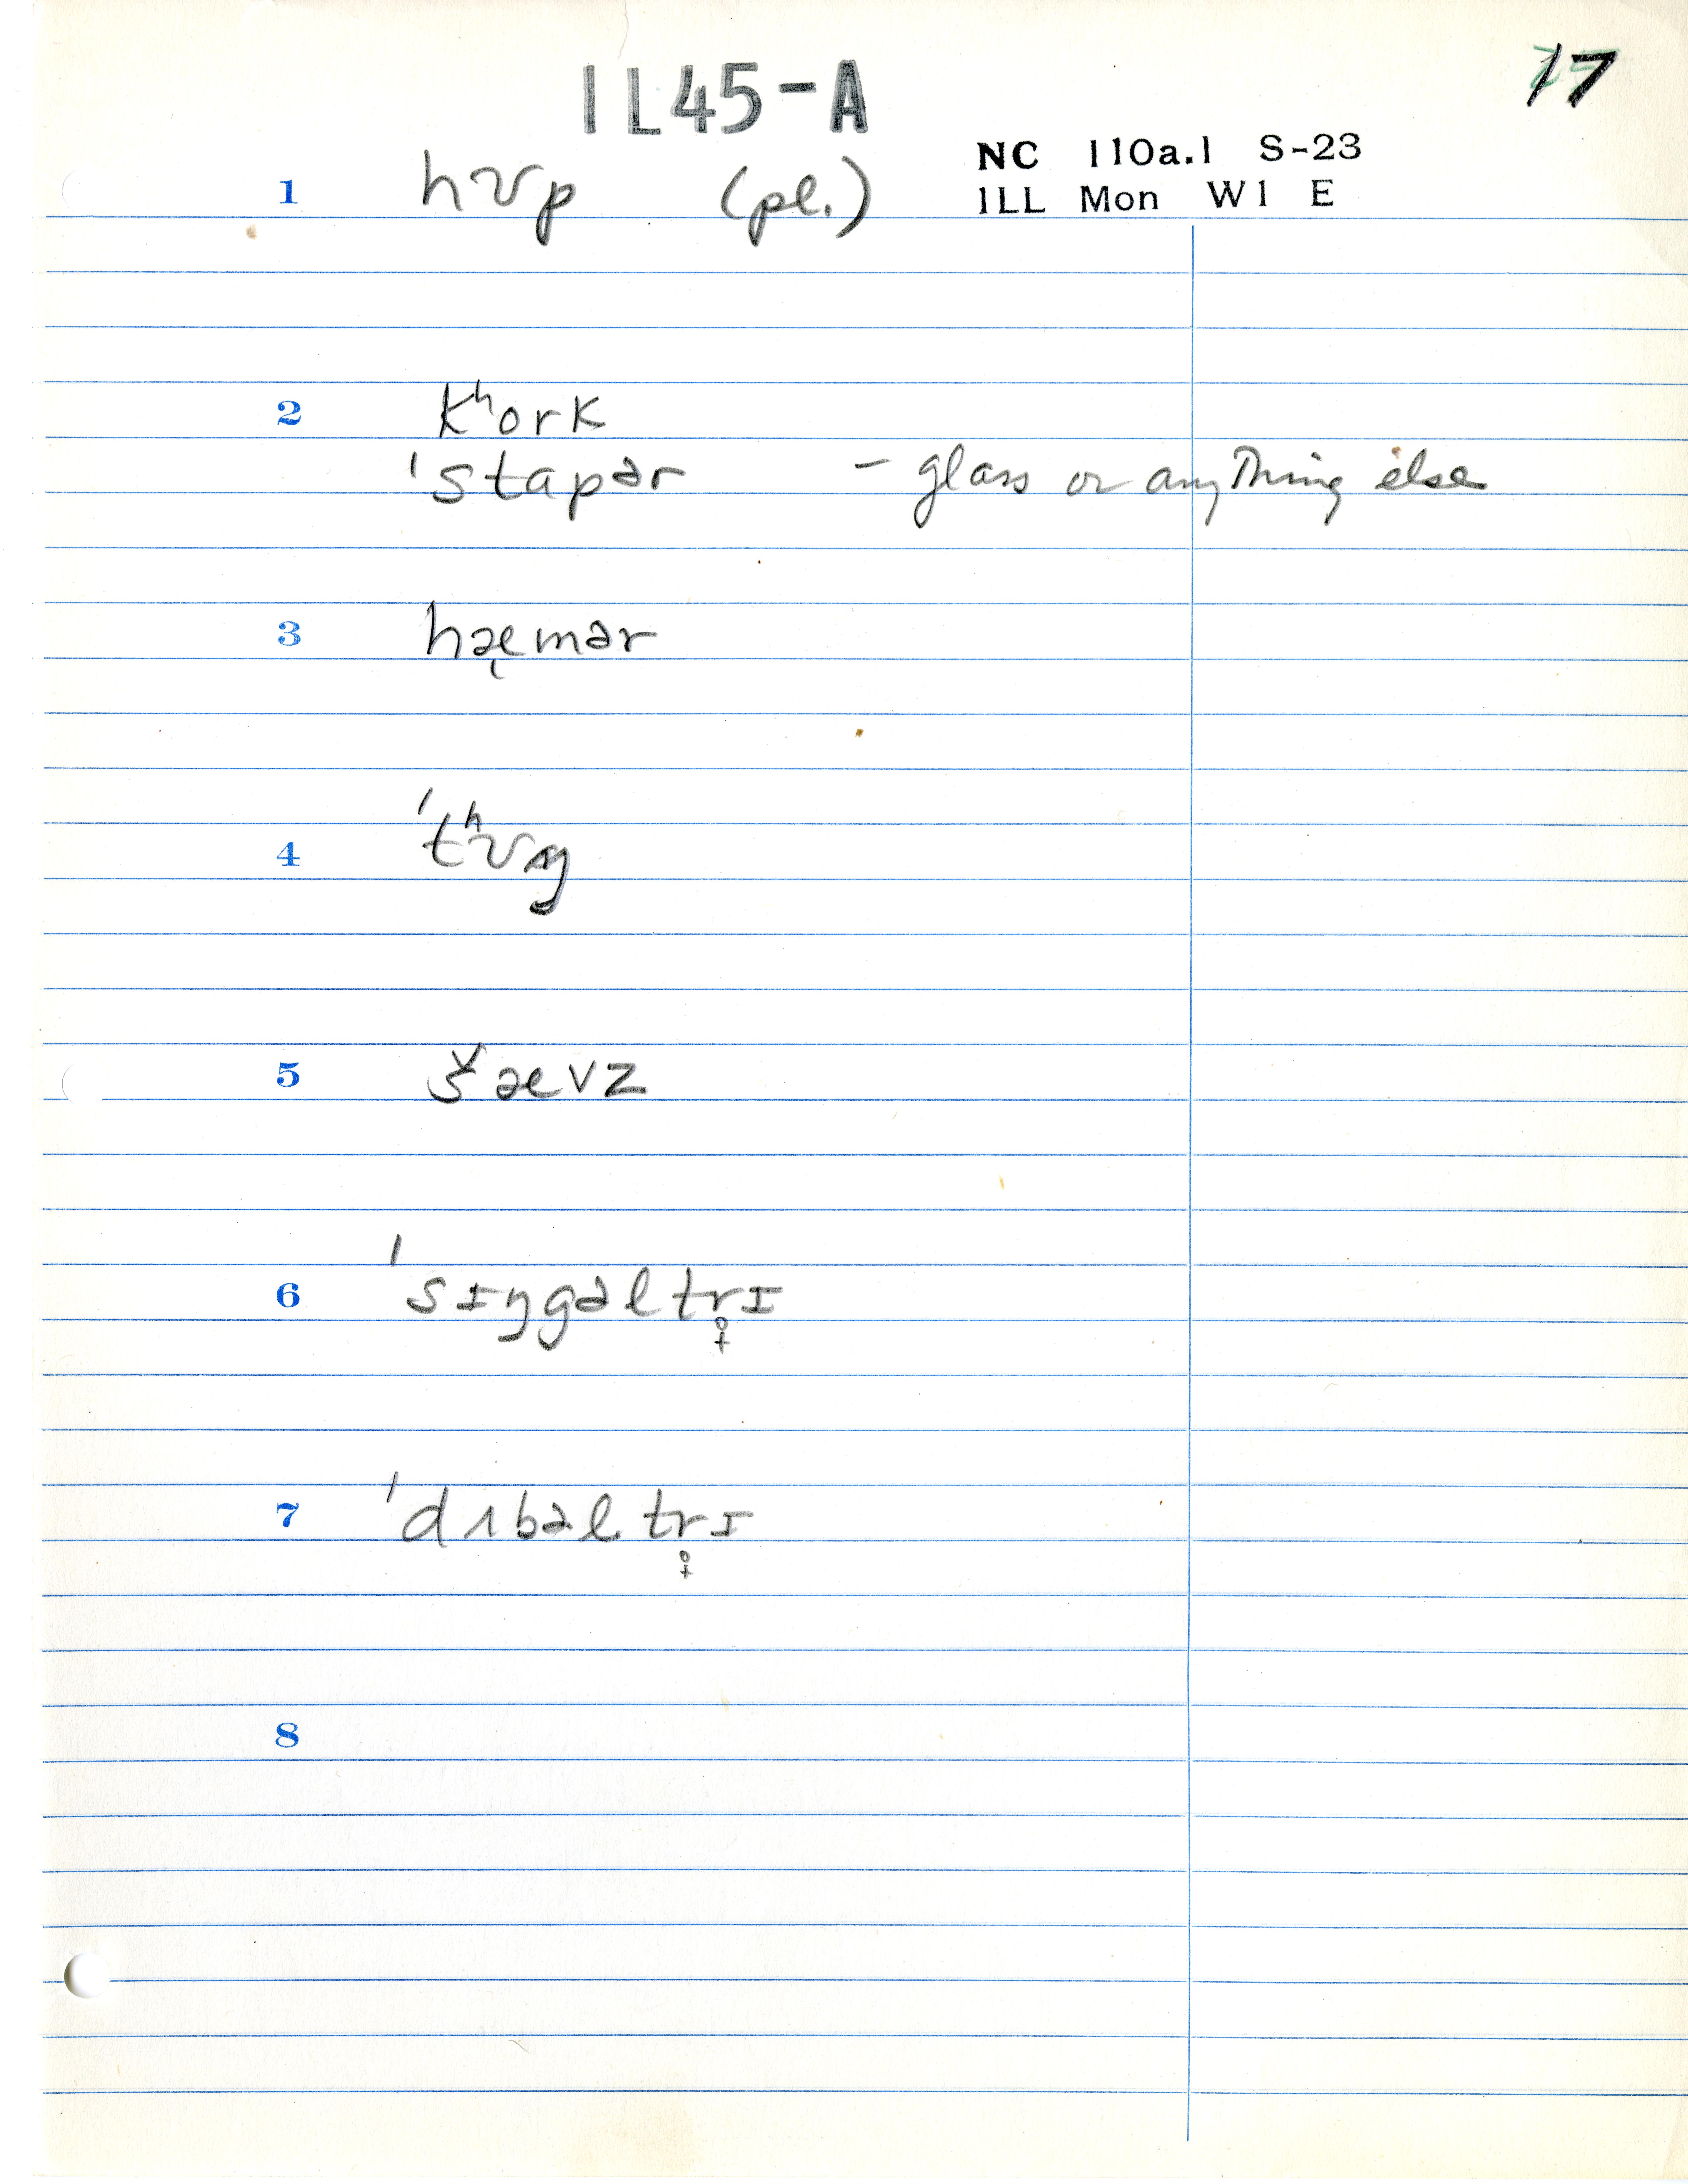 1L45-A
17
NC 110a.1 S-23
1 hʊp (pl.)
ILL Mon W1 E
2 kʰork
ˈstapər - glass or anything else
3 hæ̨mər
4 ˈtʰʊŋ
5 šævz
6 ˈsɪŋgəltr̥ɪ
7 ˈdʌbəltr̥ɪ
8